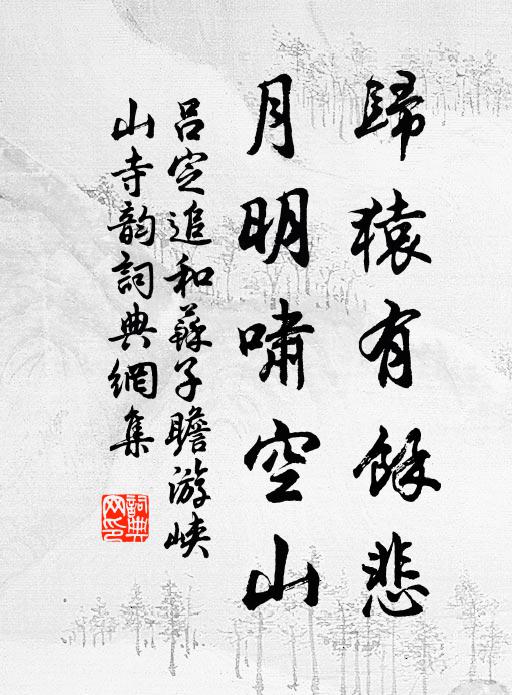 歸猿有餘悲
月明嘯空山
呂定追和蘇子瞻游峽
山寺韵詞典網集
詞典網印